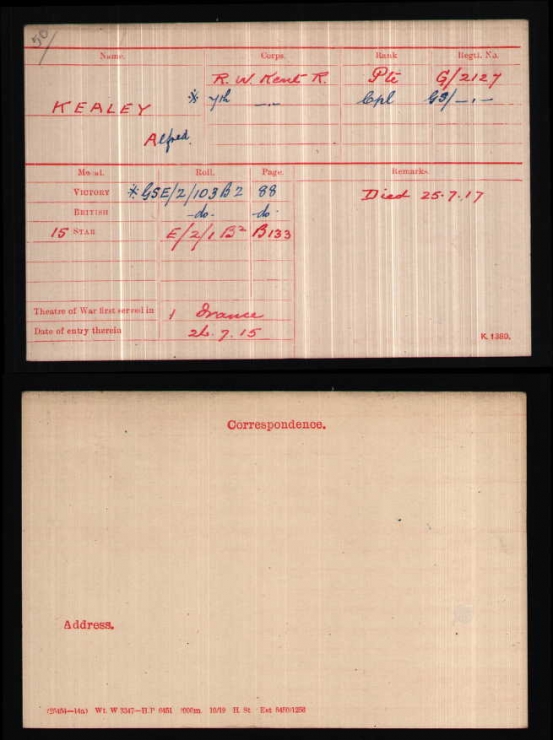 50/
Name. Corps. Rank Regtl. No.
R. W. Kent R. Pte G/2127
KEALEY * 7th —.— Cpl GS/—.—
Alfred.
Medal. Roll. Page. Remarks.
VICTORY * GSE/2/103B2 88 Died 25.7.17
BRITISH -do- -do-
15 STAR E/2/1 B2 B133
Theatre of War first served in 1 France
Date of entry therein 26.7.15
K. 1380.
Correspondence.
Address.
Wt. W 5347—H.P. 10/19 H. St.